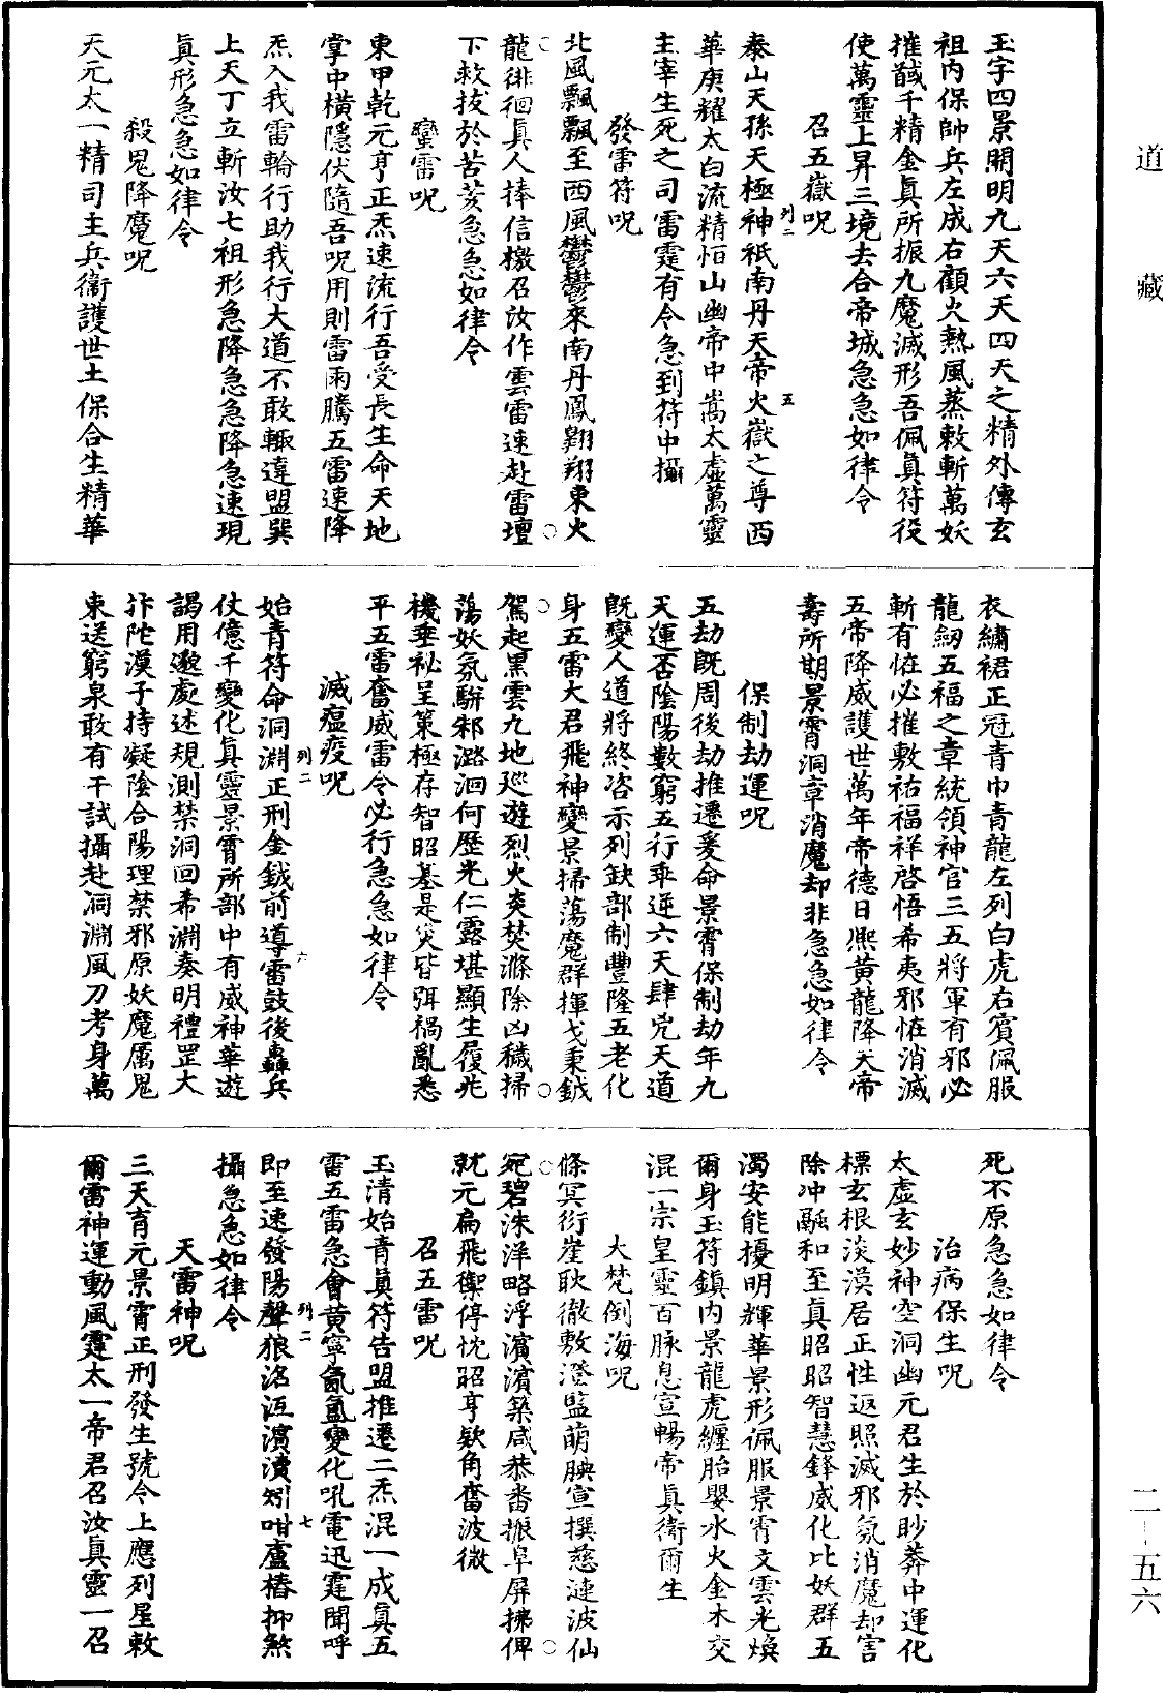 道藏
玉字四景開明九天六天四天之精外傳玄
祖内保帥兵左成右顧火熱風蒸敕斬萬妖
摧馘千精金眞所振九魔滅形吾佩眞符役
使萬靈上昇三境去合帝城急急如律令
召五嶽呪
泰山天孫天極神祇南丹天帝火嶽之尊西
華庚耀太白流精恒山幽帝中嵩太虛萬靈
主宰生死之司雷霆有令急到符中攝
發雷符呪
北風飄飄至西風鬱鬱來南丹鳳翺翔東火
龍徘徊眞人捧信檄召汝作雲雷速赴雷壇
下救拔於苦荄急急如律令
蠻雷呪
東甲乾元亨正炁速流行吾受長生命天地
掌中橫隱伏隨吾呪用則雷雨騰五雷速降
炁入我雷輪行助我行大道不敢輙違盟巽
上天丁立斬汝七祖形急降急急降急速現
眞形急急如律令
殺鬼降魔呪
天元太一精司主兵衞護世土保合生精華
列二
五
衣繡裙正冠青巾青龍左列白虎右賓佩服
龍劒五福之章統領神官三五將軍有邪必
斬有恠必摧敷祐福祥啓悟希夷邪恠消滅
五帝降威護世萬年帝德日熙黃龍降天帝
壽所期景霄洞章消魔却非急急如律令
保制劫運呪
五劫旣周後劫推遷爰命景霄保制劫年九
天運否陰陽數窮五行乖逆六天肆兇天道
旣變人道將終咨示列缺部制豐隆五老化
身五雷大君飛神變景掃蕩魔群揮戈秉鉞
駕起黑雲九地廵遊烈火炎焚滌除凶穢掃
蕩妖氛駢邪潞洄何歷光仁露堪顯生履兆
機垂祕呈策極存智昭基是災皆弭禍亂悉
平五雷奮威雷令必行急急如律令
滅瘟疫呪
始青符命洞淵正刑金鉞前導雷鼓後轟兵
仗億千變化眞靈景霄所部中有威神華遊
謁用邀處述規測禁洞回希淵奏明禮罡大
斿陀漠子持凝陰合陽理禁邪原妖魔厲鬼
東送窮泉敢有干試攝赴洞淵風刀考身萬
列二
六
死不原急急如律令
治病保生呪
太虛玄妙神空洞幽元君生於眇莽中運化
標玄根淡漠居正性返照滅邪氛消魔却害
除冲融和至眞昭昭智慧鋒威化比妖群五
濁安能擾明輝華景形佩服景霄文雲光煥
爾身玉符鎮内景龍虎纏胎嬰水火金木交
混一宗皇靈百脉息宣暢帝眞衞爾生
大梵倒海呪
條冥衍崖耿徹敷澄監萌腴宣撰慈漣波仙
宛碧洙洋略浮濱濱築咸恭畨振阜屏拂俾
就元扁飛禦停忱昭亨欵角奮波微
召五雷呪
玉清始青眞符告盟推遷二炁混一成眞五
雷五雷急會黃寧氤氳變化吼電迅霆聞呼
即至速發陽聲狼洛沍濱瀆矧咁盧椿抑煞
攝急急如律令
天雷神呪
三天育元景霄正刑發生號令上應列星敕
爾雷神運動風霆太一帝君召汝眞靈一召
列二
七
二-五六